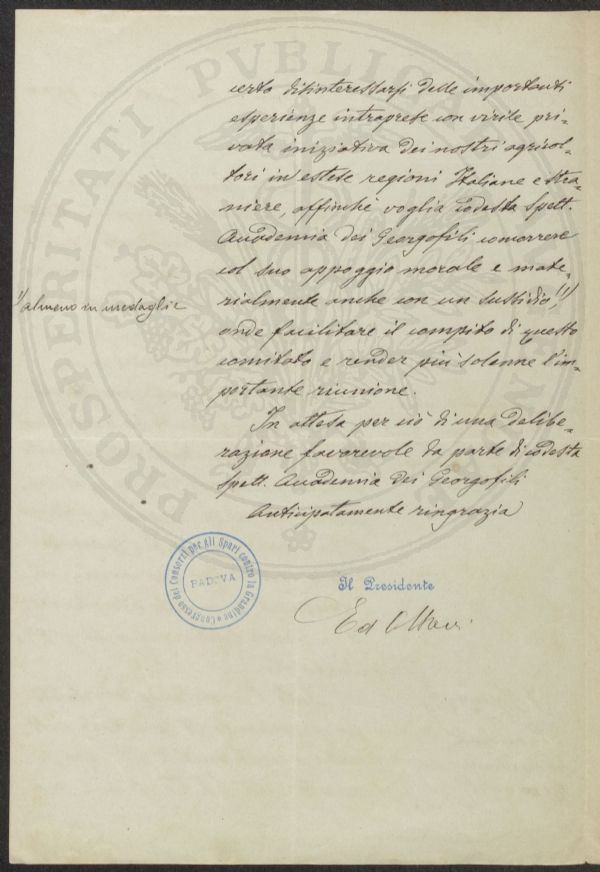 certo disinteressarsi delle importanti
esperienze intraprese con virile pri-
vata iniziativa dei nostri agricol-
tori in estese regioni Italiane e stra-
niere, affinchè voglia codesta Spett.
Accademia dei Georgofili concorrere
col suo appoggio morale e mate-
rialmente anche con un sussidio 1)
1) almeno in medaglie
onde facilitare il compito di questo
comitato e render più solenne l'im-
portante riunione.
In attesa per ciò di una delibe-
razione favorevole da parte di codesta
spett. Accademia dei Georgofili
Anticipatamente ringrazia
Il Presidente
Ed Ottavi
Congresso dei Consorzi per gli Spari contro la Grandine
PADOVA
PROSPERITATI PVBLICAE